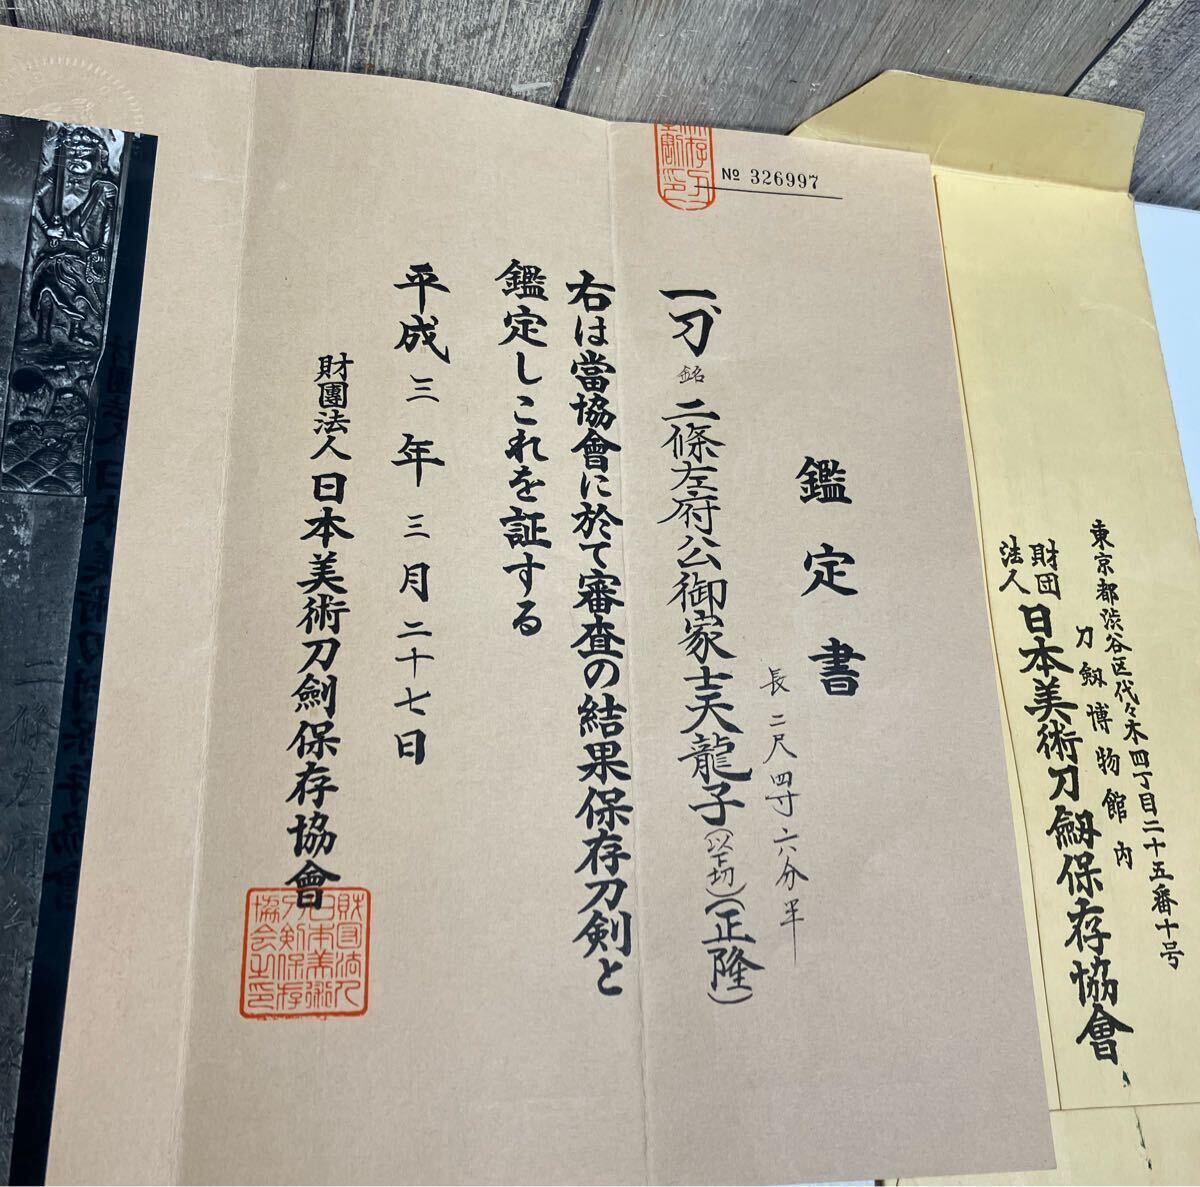 № 326997
鑑定書
一、刀 銘 二條左府公御家士天龍子(以下切)(正隆)
長二尺四寸六分半
右は當協會に於て審査の結果保存刀剣と
鑑定しこれを証する
平成三年三月二十七日
財團法人 日本美術刀劍保存協會
財団法人日本美術刀剣保存協会之印
東京都渋谷区代々木四丁目二十五番十号
刀剱博物館内
財団法人 日本美術刀劔保存協會
二條左府公